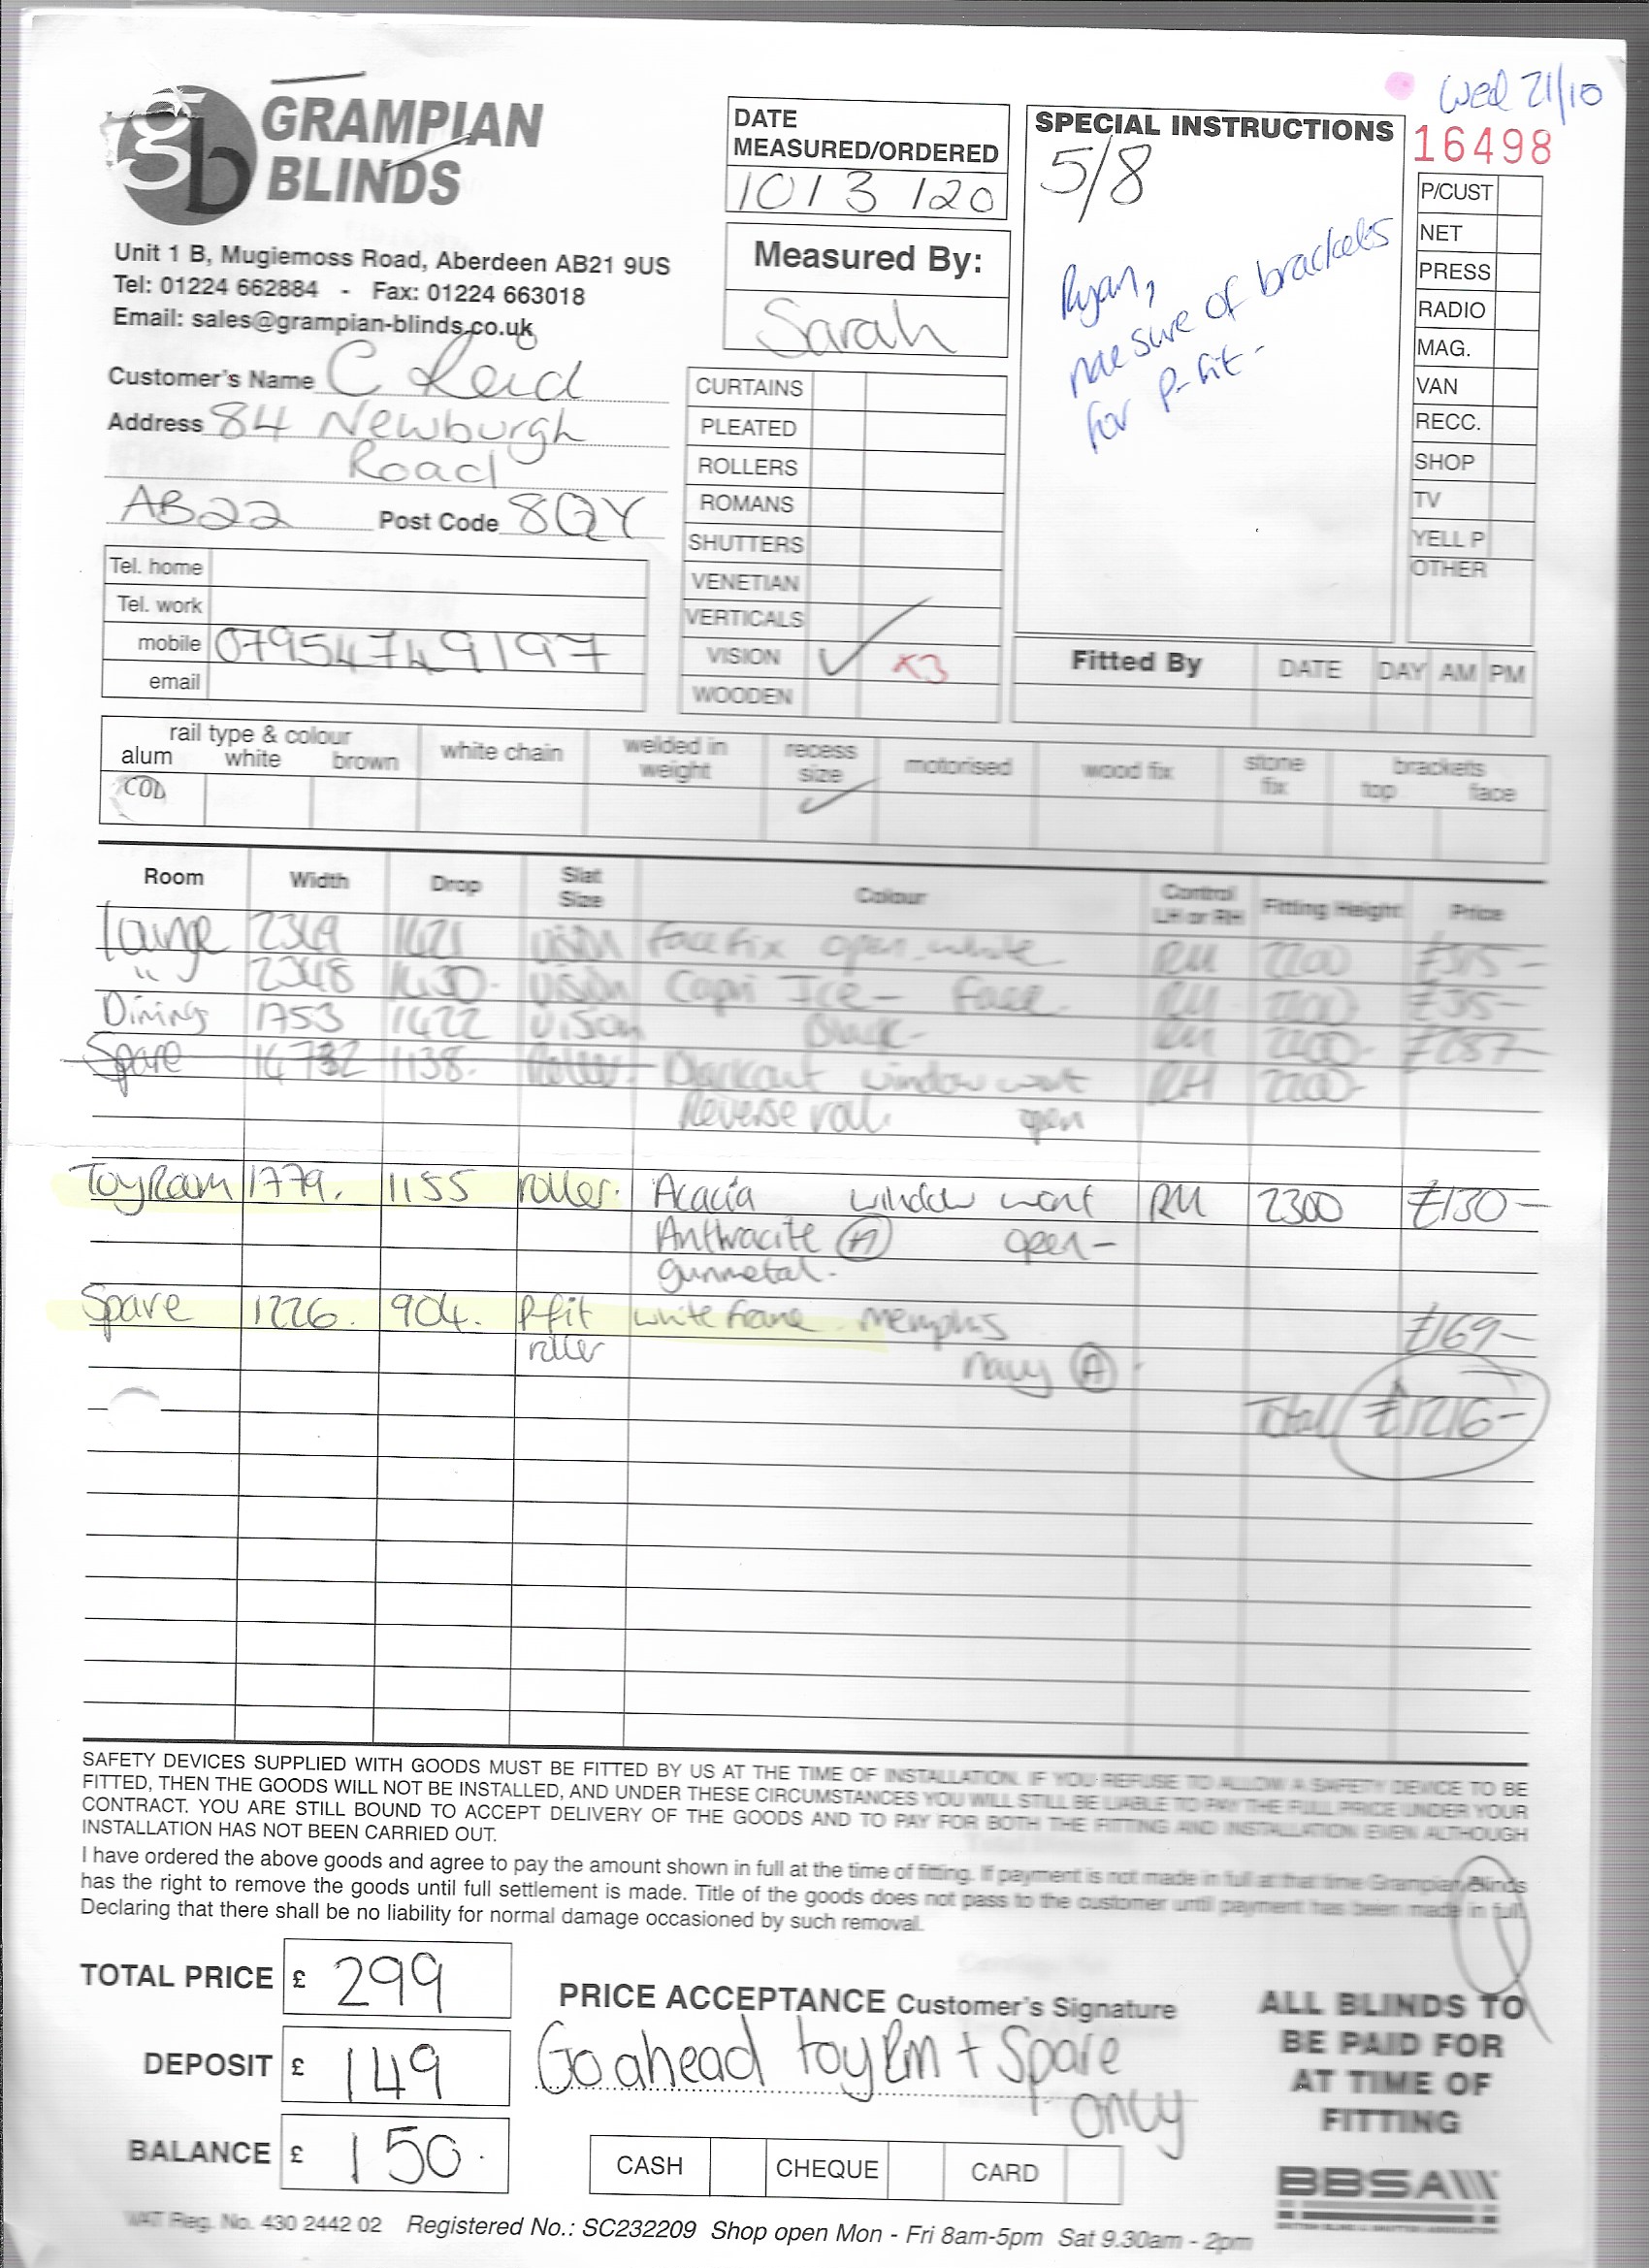 Wed 21/10
gb GRAMPIAN
BLINDS
Unit 1 B, Mugiemoss Road, Aberdeen AB21 9US
Tel: 01224 662884 - Fax: 01224 663018
Email: sales@grampian-blinds.co.uk
Customer's Name C Reid
Address 84 Newburgh
Road
AB22 Post Code 8QY
Tel. home
Tel. work
mobile 07954749197
email
DATE
MEASURED/ORDERED
10/3/20
Measured By:
Sarah
CURTAINS
PLEATED
ROLLERS
ROMANS
SHUTTERS
VENETIAN
VERTICALS
VISION ✓ x3
WOODEN
SPECIAL INSTRUCTIONS
5/8
Ryan,
nae sure of brackets
for P-fit -
16498
P/CUST
NET
PRESS
RADIO
MAG.
VAN
RECC.
SHOP
TV
YELL P
OTHER
Fitted By DATE DAY AM PM
rail type & colour
alum white brown white chain welded in weight recess size motorised wood fix stone fix brackets top face
COD ✓
Room Width Drop Slat Size Colour Control LH or RH Fitting Height Price
Lounge 2349 1421 Vision Face fix open white RH 2200
" 2348 1430. Vision Capri Ice - Face. RH 2200
Dining 1753 1422 Vision Black - RH 2200 £287-
Spare 1138. Roller - Blackout window wont RH 2200-
Reverse roll. open
Toy Room 1779. 1155 roller. Acacia window wont RH 2300 £130-
Anthracite open-
gunmetal.
Spare 1226. 904. P-fit white frame. Memphis £169-
roller navy A
Total £1216-
SAFETY DEVICES SUPPLIED WITH GOODS MUST BE FITTED BY US AT THE TIME OF INSTALLATION. IF YOU REFUSE TO ALLOW A SAFETY DEVICE TO BE
FITTED, THEN THE GOODS WILL NOT BE INSTALLED, AND UNDER THESE CIRCUMSTANCES YOU WILL STILL BE LIABLE TO PAY THE FULL PRICE UNDER YOUR
CONTRACT. YOU ARE STILL BOUND TO ACCEPT DELIVERY OF THE GOODS AND TO PAY FOR BOTH THE FITTING AND INSTALLATION EVEN ALTHOUGH
INSTALLATION HAS NOT BEEN CARRIED OUT.
I have ordered the above goods and agree to pay the amount shown in full at the time of fitting. If payment is not made in full at that time Grampian Blinds
has the right to remove the goods until full settlement is made. Title of the goods does not pass to the customer until payment has been made in full.
Declaring that there shall be no liability for normal damage occasioned by such removal.
TOTAL PRICE £ 299
DEPOSIT £ 149
BALANCE £ 150.
PRICE ACCEPTANCE Customer's Signature
Go ahead toy Rm + Spare
only
CASH CHEQUE CARD
ALL BLINDS TO
BE PAID FOR
AT TIME OF
FITTING
BBSA
BRITISH BLIND & SHUTTER ASSOCIATION
VAT Reg. No. 430 2442 02 Registered No.: SC232209 Shop open Mon - Fri 8am-5pm Sat 9.30am - 2pm